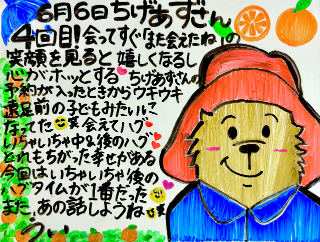 6月6日ちげあずさん
4回目!会ってすぐ「また会えたね!」の
笑顔を見ると嬉しくなるし
心がホッとする ちげあずさんの
予約が入ったときからウキウキ
遠足前の子どもみたいに
なってた 笑 会えてハグ
いちゃいちゃ中&後のハグ
どれもちがった幸せがある
今回はいちゃいちゃ後の
ハグタイムが1番だった
また、あの話しようね 笑